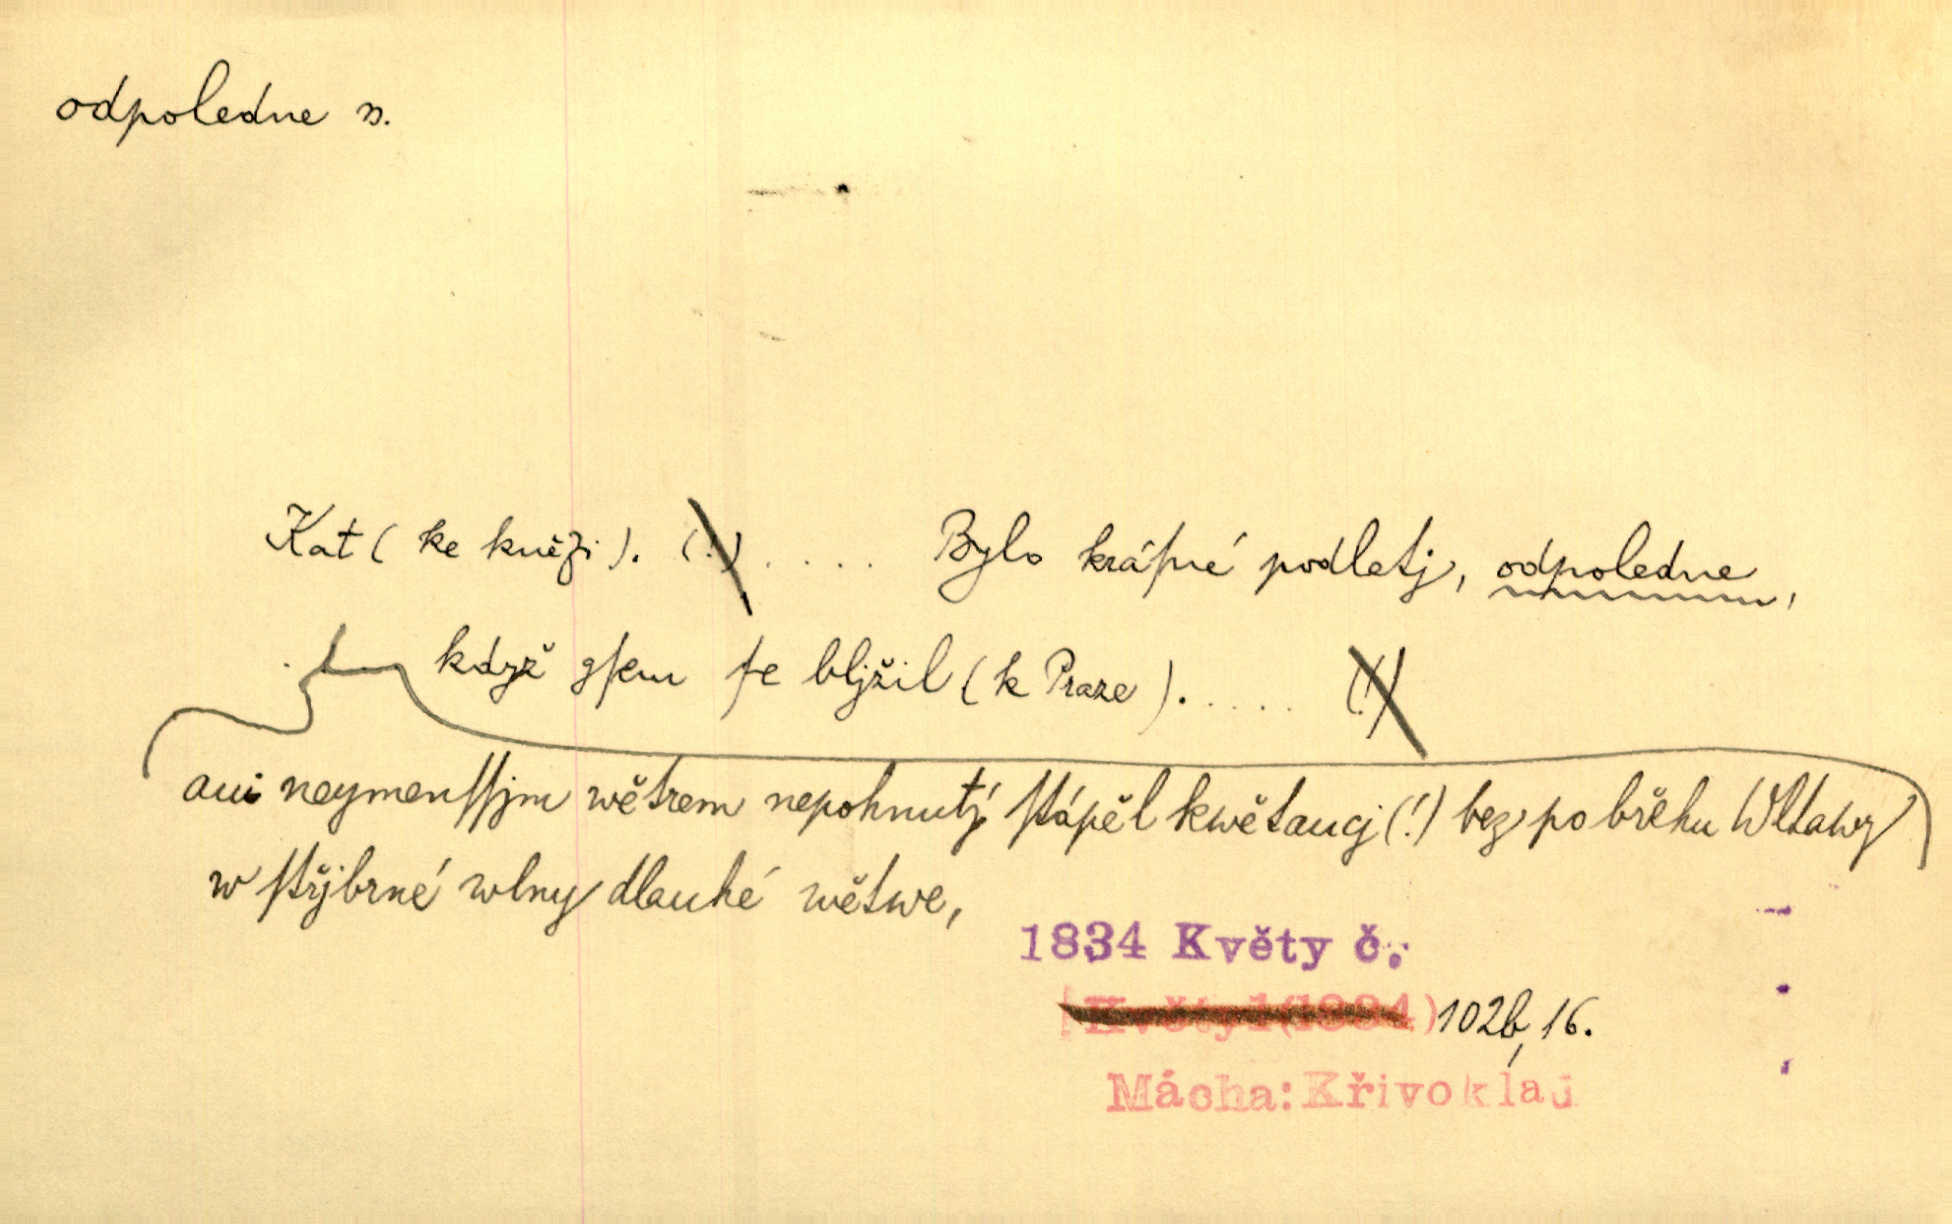 odpoledne n.
Kat ( ke kněži ). (!) . . . . Bylo kráſné podletj, odpoledne,
když gſem ſe bljžil ( k Praze ). . . . . (!)
ani neymenſſjm wětrem nepohnutý ſtápěl kwětaucj (!) bez po břehu Wltawy
w ſtřjbrné wlny dlauhé wětwe,
1834 Květy č.
Květy 1(1834) 102b, 16.
Mácha: Křivoklad